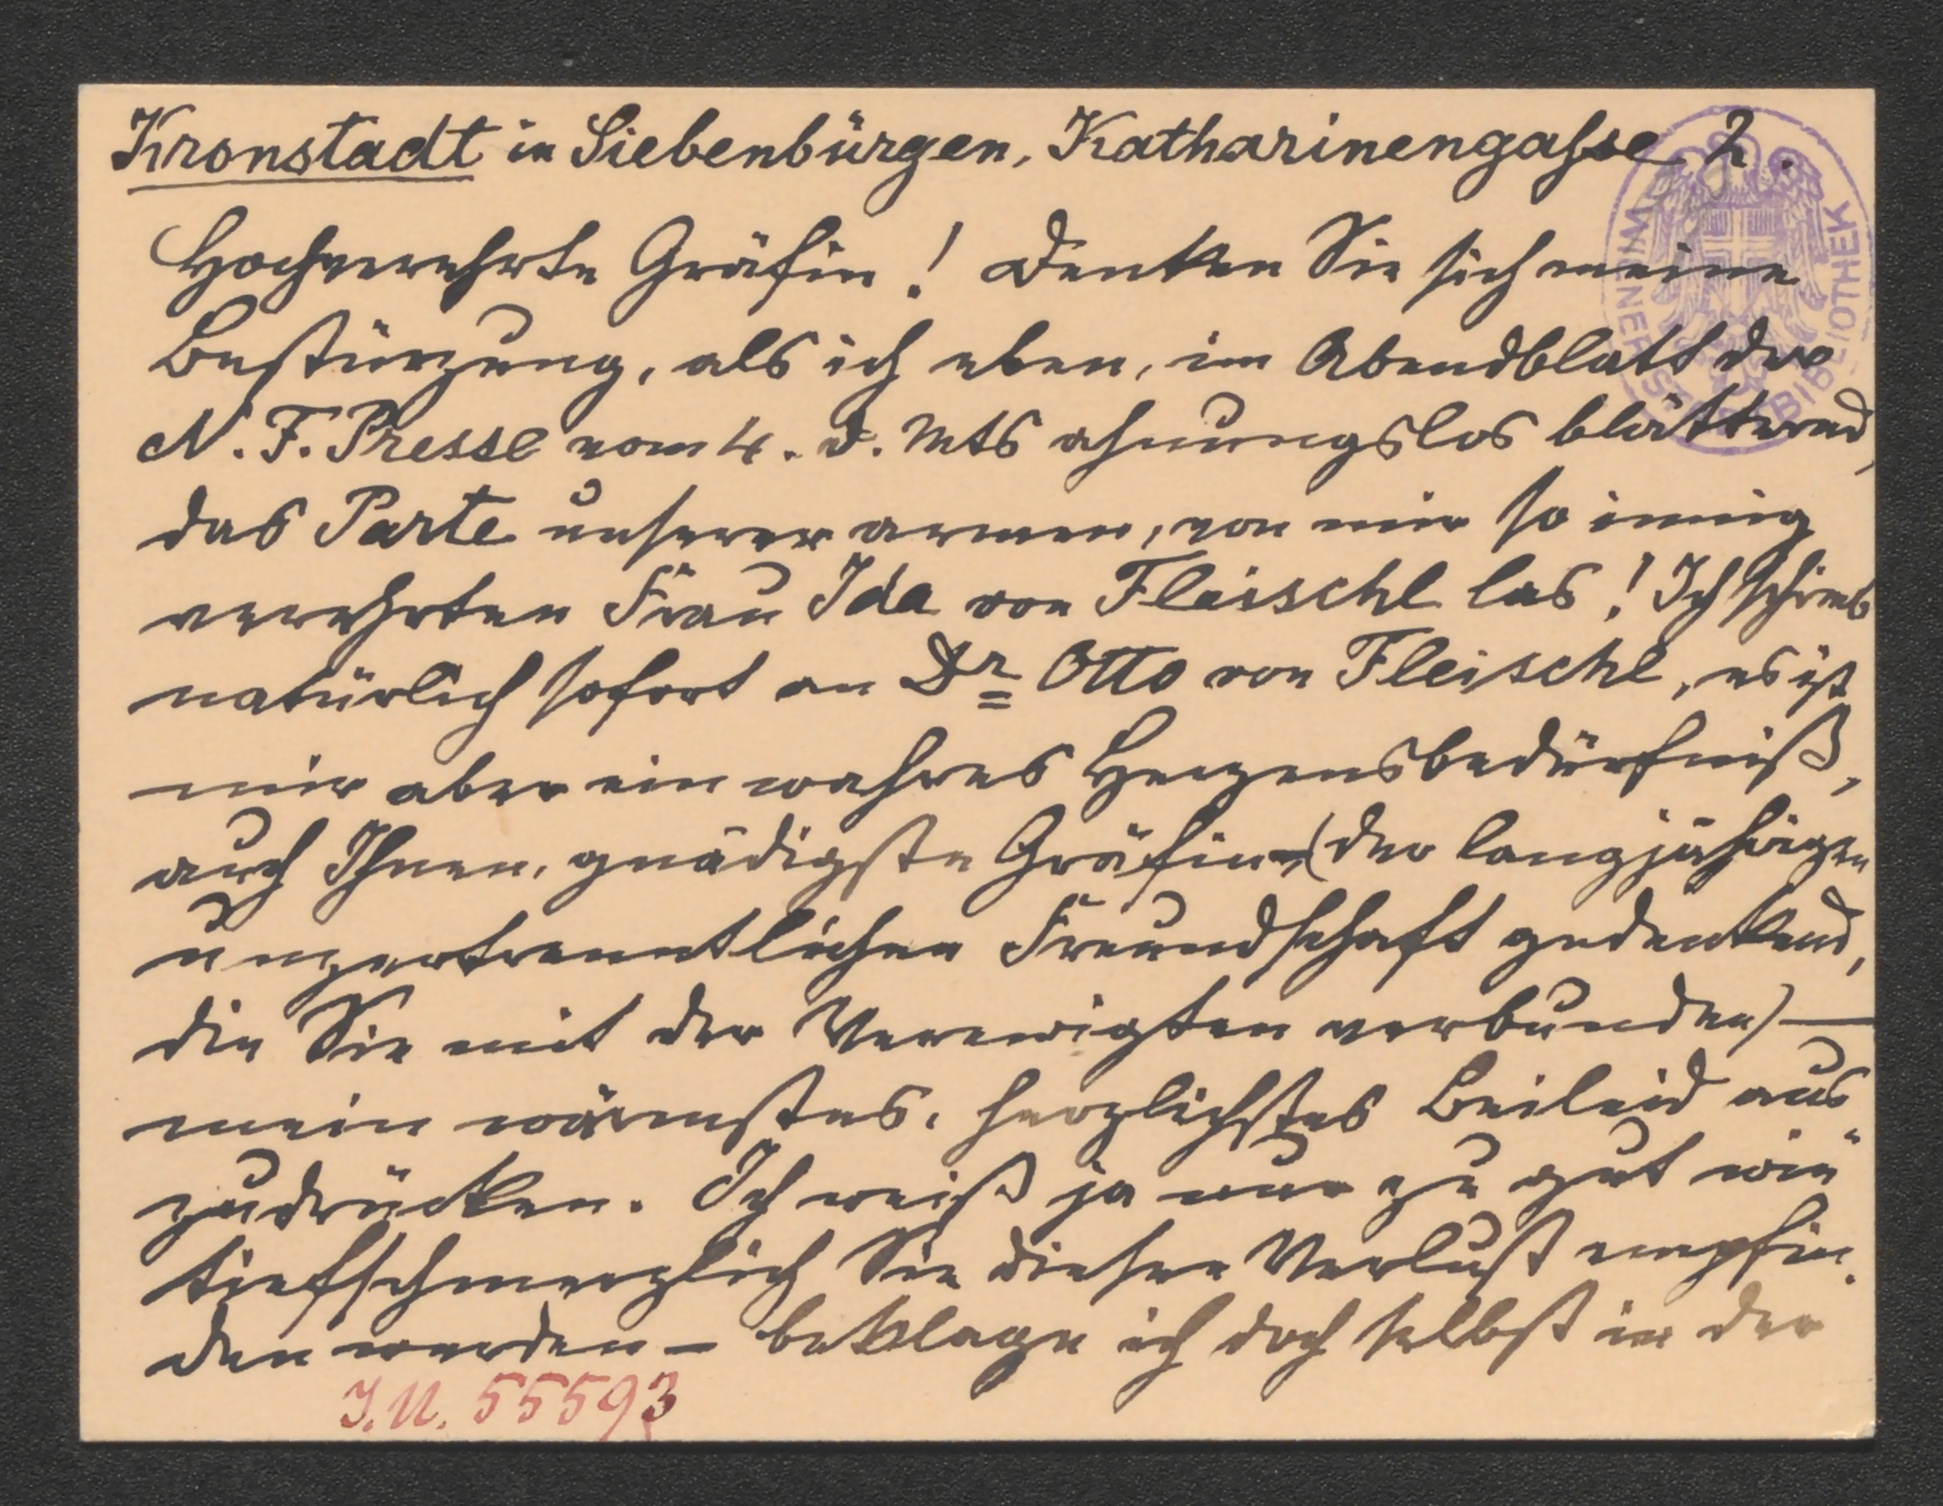 Kronstadt in Siebenbürgen, Katharinengasse 2.
Hochverehrte Gräfin! Denken Sie sich meine
Bestürzung, als ich eben, im Abendblatt der
N. F. Presse vom 4. d. Mts ahnungslos blätternd,
das Parte unserer armen, von mir so innig
verehrten Frau Ida von Fleischl las! Ich schrieb
natürlich sofort an Dr Otto von Fleischl, es ist
mir aber ein wahres Herzensbedürfniß,
auch Ihnen, gnädigste Gräfin (der langjährigen
unzertrenntlichen Freundschaft gedenkend,
die Sie mit der Verewigten verbunden) —
mein wärmstes, herzlichstes Beileid aus
zudrücken. Ich weiß ja nur zu gut wie
tiefschmerzlich Sie diesen Verlust empfin
den werden – beklage ich doch selbst in der
J.N. 55593
WIENER STADTBIBLIOTHEK